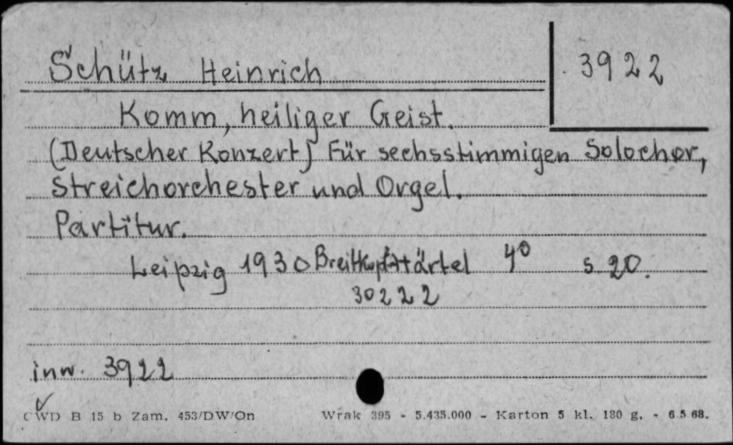 Schütz Heinrich
3922
Komm, heiliger Geist.
(Deutscher Konzert) Für sechsstimmigen Solochor,
Streichorchester und Orgel.
Partitur.
Leipzig 1930 Breitkopf Härtel 4° s 20.
30222
inw. 3922
CWD B 15 b Zam. 453/DW/On Wrak 395 - 5.435.000 - Karton 5 kl. 180 g. - 6.5.68.